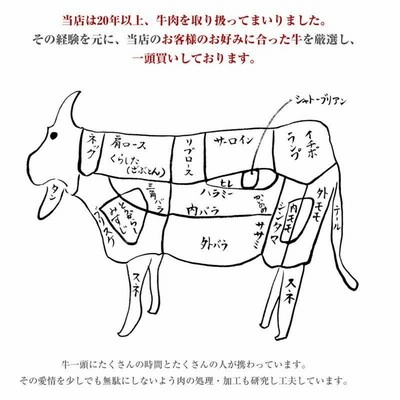 当店は20年以上、牛肉を取り扱ってまいりました。
その経験を元に、当店のお客様のお好みに合った牛を厳選し、
一頭買いしております。
シャトーブリアン
ネック
肩ロース
くらした
(ざぶとん)
リブロース
サーロイン
イチボ
ランプ
タン
三角バラ
ヒレ
ハラミ
ブリスケ
みすじ
とうがらし
内バラ
外バラ
かいのみ
ササミ
シンタマ
内モモ
外モモ
テール
スネ
スネ
牛一頭にたくさんの時間とたくさんの人が携わっています。
その愛情を少しでも無駄にしないよう肉の処理・加工も研究し工夫しています。